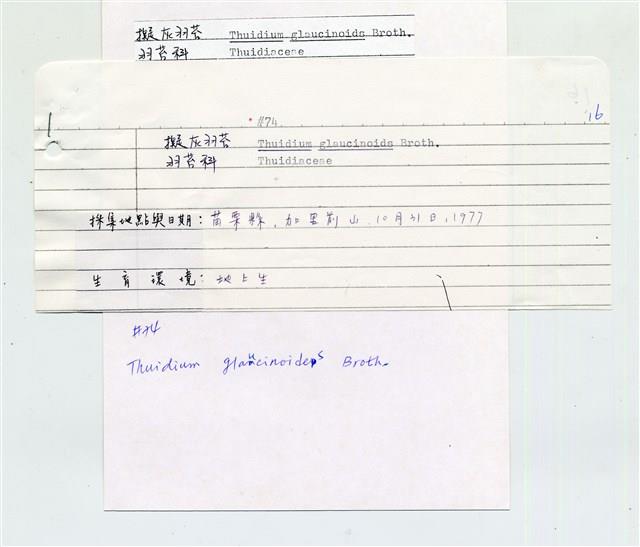 擬灰羽苔 Thuidium glaucinoids Broth.
羽苔科 Thuidiacese
1
16
#74
擬灰羽苔 Thuidium glaucinoids Broth.
羽苔科 Thuidiacese
採集地點與日期: 苗栗縣, 加里前山, 10月31日, 1977
生育環境: 地上生
#74
Thuidium glaucinoides Broth.